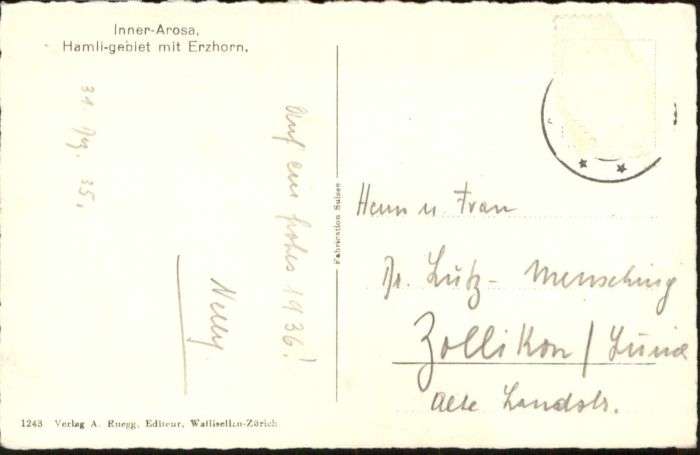 Inner-Arosa,
Hamli-gebiet mit Erzhorn.
31. Dez. 35.
Auf ein frohes 1936!
Nelly.
Fabrication Suisse
Herrn u Frau
Dr. Lutz - Mensching
Zollikon /
Alte Landstr.
1243 Verlag A. Ruegg, Editeur, Wallisellen-Zürich